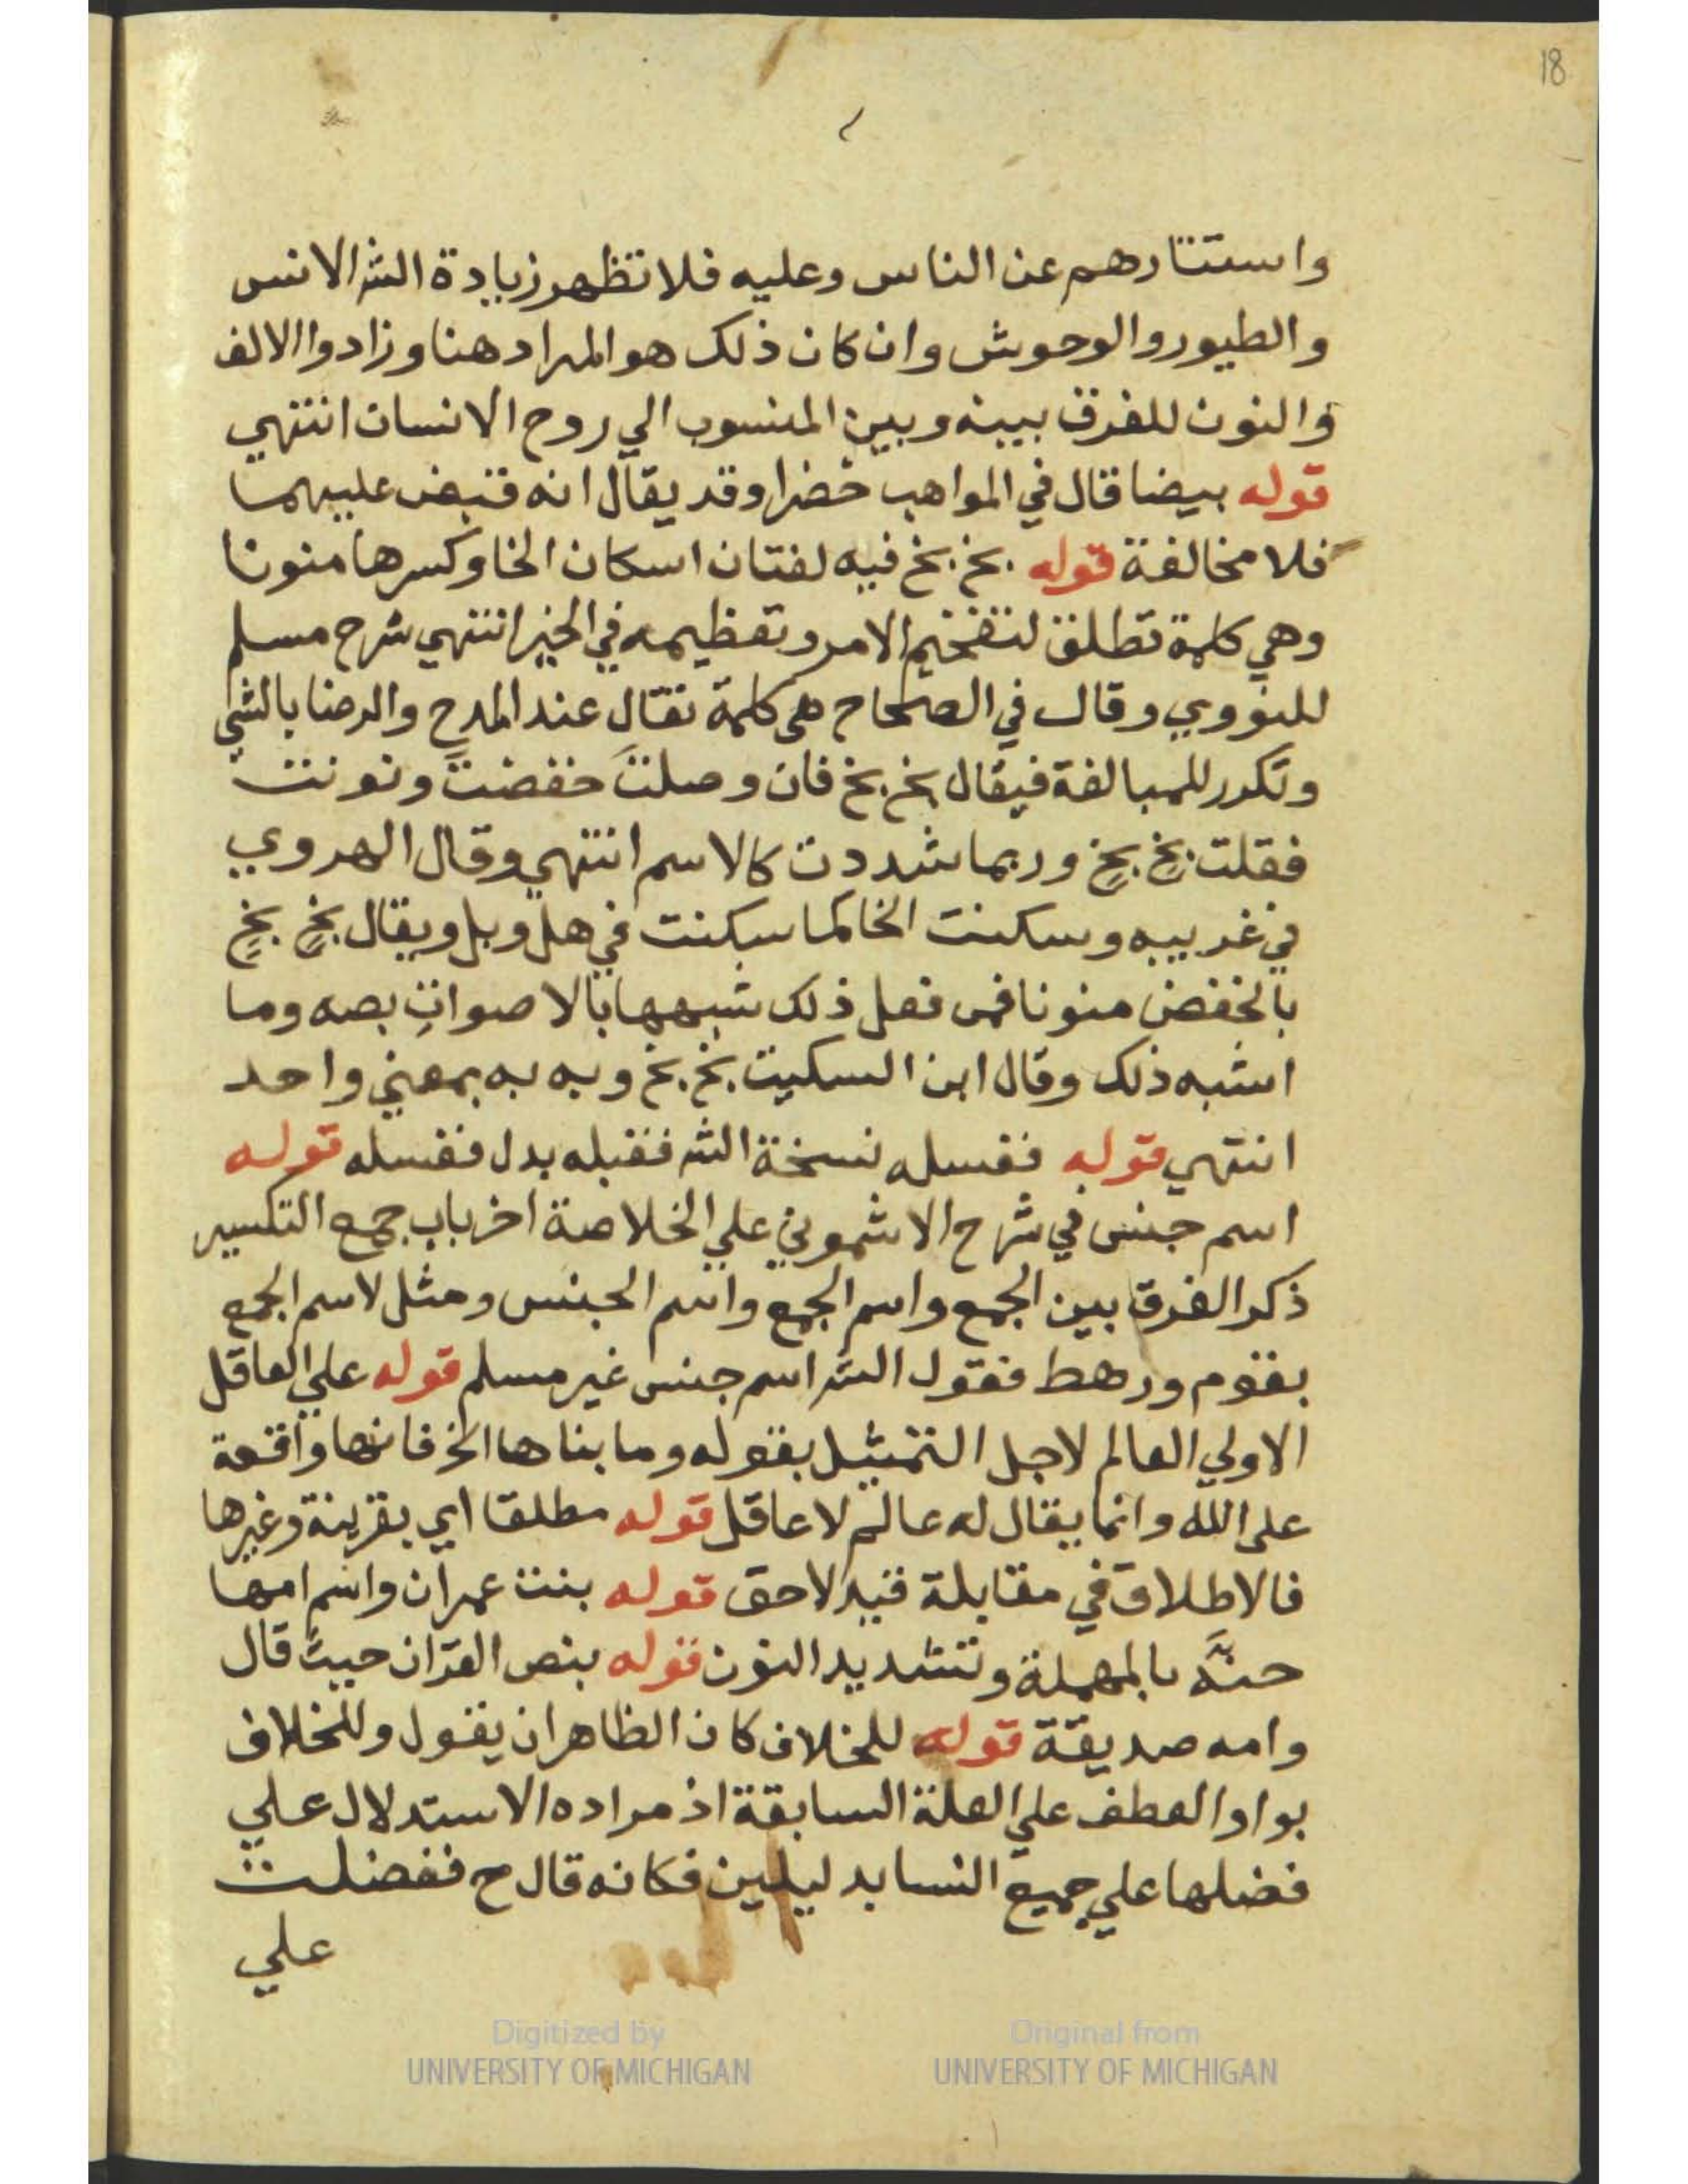 18
واستتارهم عن الناس وعليه فلا تظهر زيادة الشر الانس
والطيور والوحوش وان كان ذلك هو المراد هنا وزادوا الالف
والنون للفرق بينه وبين المنسوب الي روح الانسان انتهي
قوله بيضا قال في المواهب خضرا وقد يقال انه قبض عليهما
فلا مخالفة قوله بخ بخ فيه لغتان اسكان الخا وكسرها منونا
وهي كلمة تطلق لتفخيم الامر وتعظيمه في الخير انتهي شرح مسلم
للنووي وقال في الصحاح هي كلمة تقال عند المدح والرضا بالشي
وتكرر للمبالغة فيقال بخ بخ فان وصلتَ خفضتَ ونونت
فقلت بخٍ بخٍ وربما شددت كالاسم انتهي وقال الهروي
في غريبه وسكنت الخا كما سكنت في هل وبل ويقال بخٍ بخٍ
بالخفض منونا فمن فعل ذلك شبهها بالاصواتِ بصه وما
اشبه ذلك وقال ابن السكيت بخ بخ وبه به بمعني واحد
انتهي قوله فغسله نسخة الشر فقبله بدل فغسله قوله
اسم جنس في شرح الاشموني علي الخلاصة اخر باب جمع التكسير
ذكر الفرق بين الجمع واسم الجمع واسم الجنس ومثل لاسم الجمع
بقوم ورهط فقول الشر اسم جنس غير مسلم قوله علي العاقل
الاولي العالم لاجل التمثيل بقوله وما بناها الخ فانها واقعة
علي الله وانما يقال له عالم لا عاقل قوله مطلقا اي بقرينة وغيرها
فالاطلاق في مقابلة قيد لاحق قوله بنت عمران واسم امها
حنَّه بالمهملة وتشديد النون قوله بنص القران حيث قال
وامه صديقة قوله للخلاف كان الظاهر ان يقول وللخلاف
بواو العطف علي العلة السابقة اذ مراده الاستدلال علي
فضلها علي جميع النسا بدليلين فكانه قال ح ففضلت
علي
Digitized by
UNIVERSITY OF MICHIGAN
Original from
UNIVERSITY OF MICHIGAN